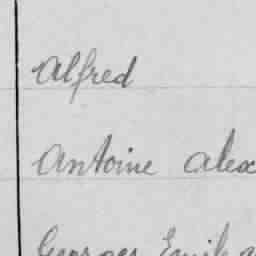 Alfred
Antoine Alex
Georges Emile